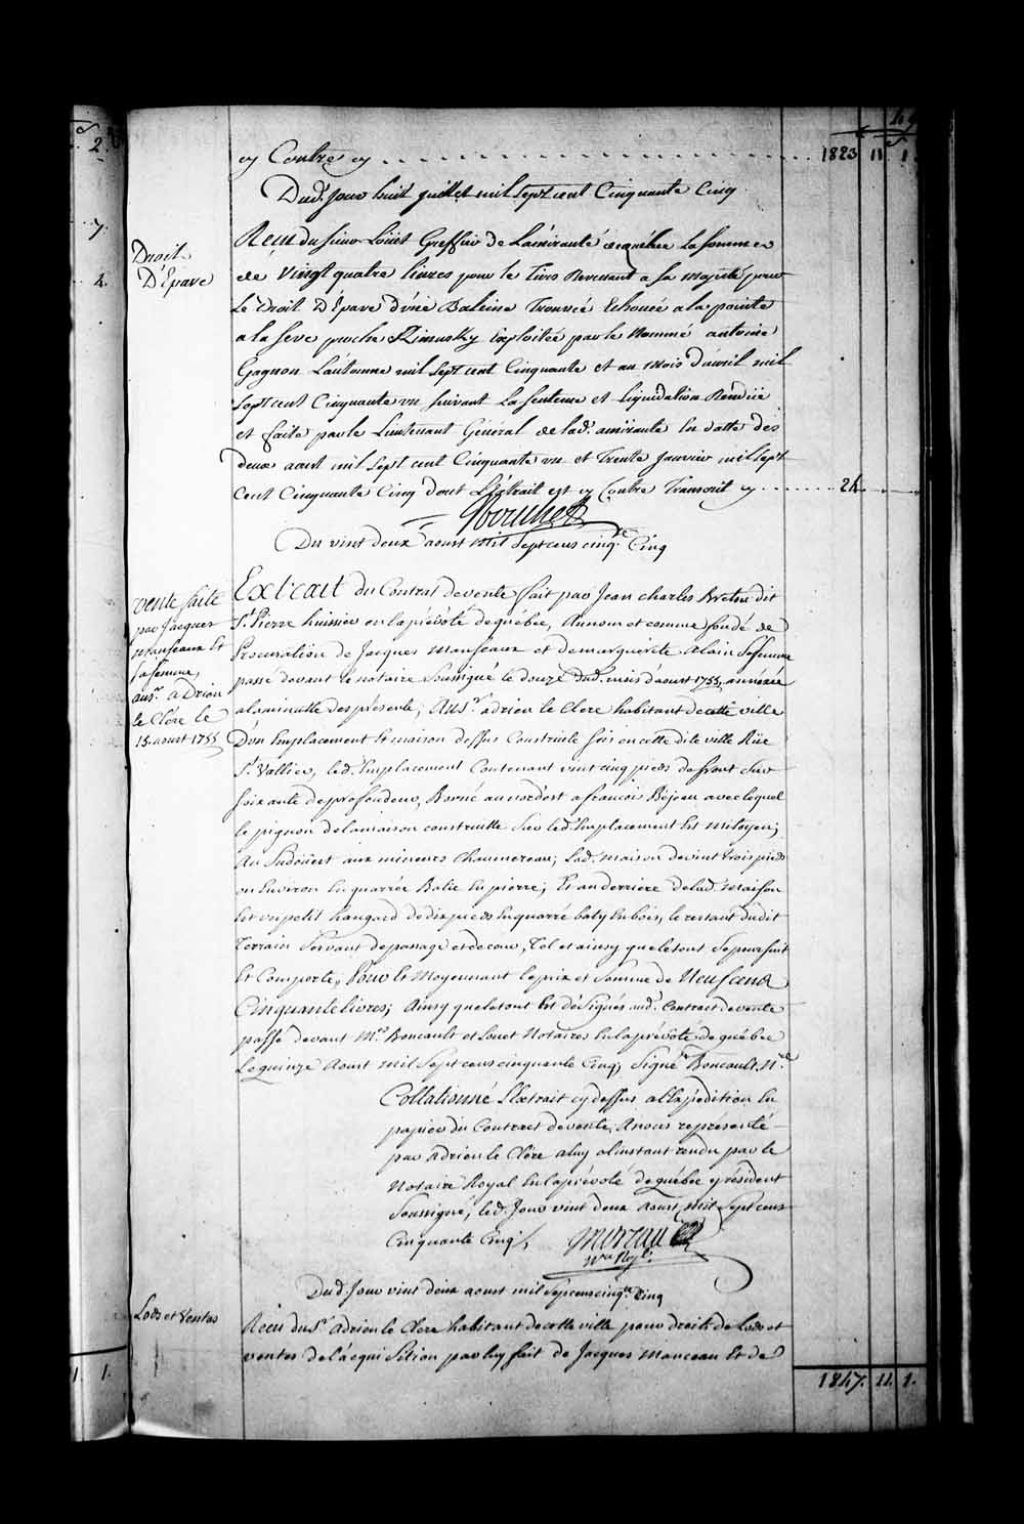 cy Contre cy . . . . . . 1823 11 1.
Dud. Jour huit Juillet mil Sept cent Cinquante Cinq
Droit
D'Épave
Recu du sieur Louët Greffier de Lamirauté de quebec La somme
de Vingt quatre livres pour le tiers Revenant a sa majesté pour
Le Droit D'Épave d'une Baleine Trouvée Echouée a la pointe
a la pres proche Rimousky Exploitée par le Nommé antoine
Gagnon L'autonne mil Sept cent Cinquante et au mois d'avril mil
Sept cent Cinquante un suivant La Sentence et Liquidation Renduë
et faite par le Lieutenant Général de lad. amirauté En datte des
deux aout mil Sept cent Cinquante un et Trente Janvier mil Sept
Cent Cinquante Cinq dont L'Extrait est cy Contre Transcrit cy . . . . . 24
Du vint deux aoust mil Sept cens cinqte. Cinq
vente faite
par Jacques
Manseaux Et
sa femme,
au sr. adrien
le Clere le
15. aoust 1755
Extrait du Contrat de vente fait par Jean charles Breton dit
St. Pierre huissier en la prévôté de québec, au nom et comme fondé de
Procuration de Jacques Manseaux et de marguerite Alain sa femme
passé devant le notaire Soussigné le douze dud. mois d'aoust 1755, annéxée
a la minutte des présente, Au Sr. adrien le Clere habitant de cette ville
D'un Emplacement Et maison dessus Construite sis en cette dite ville Rüe
St. Vallier, led. Emplacement Contenant vint cinq pieds de front Sur
soixante de profondeur, Borné au nordest a francois Bejeau avec lequel
le pignon de la maison construitte sur led. Emplacement Est mitoyen;
Au Sudoüest aux mineurs Chaumereau; Lad. maison de vint trois pieds
ou Environ En quarrée Batie En pierre; Et au derriere de lad. maison
Est un petit hangard de dix pieds En quarré baty En bois, le restant dudit
Terrain Servant de passage et de cour, Tel et ainsy que le tout Se poursuit
Et Comporte, Pour Et Moyennant le prix et Somme de Neuf cent
Cinquante livres; Ainsy que le tout Est désigné aud. Contract de vente
passé devant Mes. Boucault et Sanet Notaires En la prévôté de québec
Le quinze Aoust mil Sept cens cinquante Cinq, Signé Boucault, Nre.
Collationné L'extrait cy dessus a L'expedition En
papier du Contract de vente, A nous représenté
par adrien le Clere a luy a l'instant rendu par le
Notaire Royal En la prévôté de québec y résident
Soussigné, led. Jour vint deux Aoust, mil Sept cens
Cinquante Cinq,. Moreau
Nre. Royl.
Dud. Jour vint deux aoust mil Sept cens cinqte. Cinq
Lods et Ventes
Recu du Sr. adrien le Clere habitant de cette ville pour droits de Lods et
ventes de l'acquisition par luy fait de Jacques Manceau Et de
1847. 11. 1.